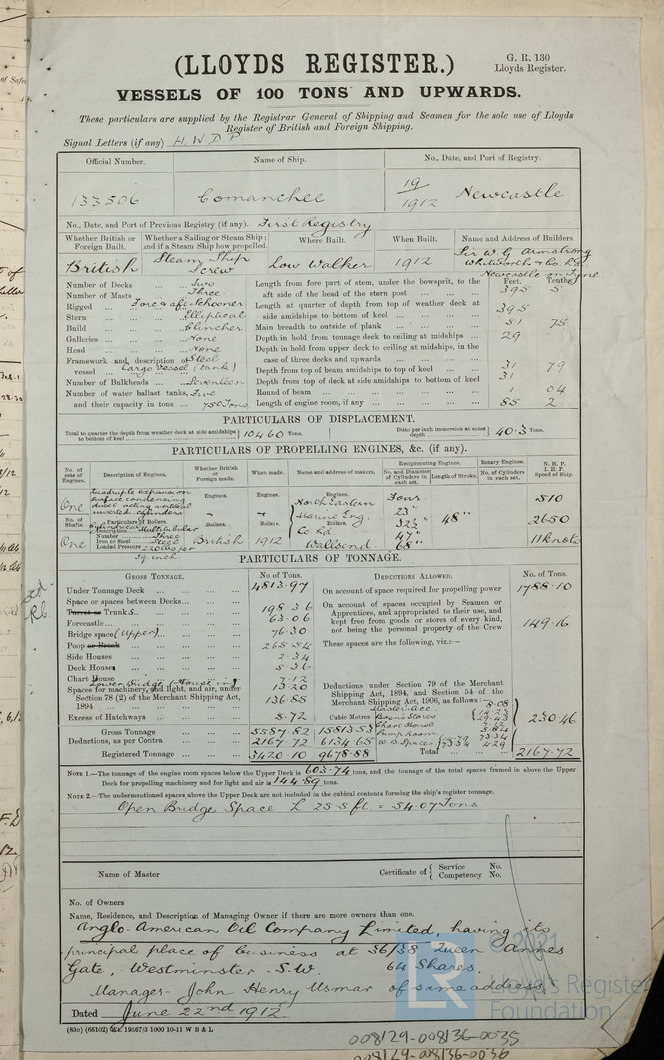 (LLOYDS REGISTER.)
G. R. 130
Lloyds Register.
VESSELS OF 100 TONS AND UPWARDS.
These particulars are supplied by the Registrar General of Shipping and Seamen for the sole use of Lloyds
Register of British and Foreign Shipping.
Signal Letters (if any) H W D P
Official Number. Name of Ship. No., Date, and Port of Registry.
133506 Comanchee 19/1912 Newcastle
No., Date, and Port of Previous Registry (if any). First Registry
Whether British or Foreign Built. Whether a Sailing or Steam Ship; and if a Steam Ship how propelled. Where Built. When Built. Name and Address of Builders.
British Steam Ship Screw Low Walker 1912 Sir W. G Armstrong Whitworth & Co. Ld Newcastle on Tyne
Feet. Tenths.
Number of Decks ... Two
Number of Masts ... Three
Rigged ... Fore & aft Schooner
Stern ... Elliptical
Build ... Clincher
Galleries ... None
Head ... None
Framework and description of vessel ... Steel Cargo Vessel (tank)
Number of Bulkheads ... Seventeen
Number of water ballast tanks, Five
and their capacity in tons ... 750 Tons
Length from fore part of stem, under the bowsprit, to the
aft side of the head of the stern post ... 395 5
Length at quarter of depth from top of weather deck at
side amidships to bottom of keel ... 395
Main breadth to outside of plank ... 51 75
Depth in hold from tonnage deck to ceiling at midships ... 29
Depth in hold from upper deck to ceiling at midships, in the
case of three decks and upwards ...
Depth from top of beam amidships to top of keel ... 31 79
Depth from top of deck at side amidships to bottom of keel 31
Round of beam ... 1 04
Length of engine room, if any ... 85 2
PARTICULARS OF DISPLACEMENT.
Total to quarter the depth from weather deck at side amidships to bottom of keel 10460 Tons.
Ditto per inch immersion at same depth 40.3 Tons.
PARTICULARS OF PROPELLING ENGINES, &c. (if any).
No. of sets of Engines. Description of Engines. Whether British or Foreign made. When made. Name and address of makers. Reciprocating Engines. Rotary Engines. N. H. P. I. H. P. Speed of Ship.
No. and Diameter of Cylinders in each set. Length of Stroke. No. of Cylinders in each set.
One Quadruple expansion surface condensing direct acting vertical inverted cylinders
Engines. Engines. Engines. North Eastern Marine Eng. Co Ld Wallsend
Four 23" 32½" 47" 68" 48"
510
2650
11 knots
No. of Shafts. Particulars of Boilers.
One
Description Cylindrical Multitubular
Number Three
Iron or Steel Steel
Loaded Pressure 220 lbs per sq inch
Boilers. Boilers. Boilers.
British 1912
PARTICULARS OF TONNAGE.
GROSS TONNAGE. No of Tons.
Under Tonnage Deck ... 4813.97
Space or spaces between Decks ...
Turret or Trunks ... 198.36
Forecastle ... 63.06
Bridge space (Upper) ... 76.30
Poop or Break ... 265.54
Side Houses ... 2.34
Deck Houses ... 5.36
Chart House ... 7.12
Lower Bridge
Spaces for machinery, and light, and air, under
Section 78 (2) of the Merchant Shipping Act,
1894 ... 136.85
13.20
Excess of Hatchways ... 5.72
Gross Tonnage ... 5587.82 15813.53
Deductions, as per Contra ... 2167.72 6134.65
Registered Tonnage ... 3420.10 9678.88
Cubic Metres
DEDUCTIONS ALLOWED. No. of Tons.
On account of space required for propelling power 1788.10
On account of spaces occupied by Seamen or
Apprentices, and appropriated to their use, and
kept free from goods or stores of every kind,
not being the personal property of the Crew 149.16
These spaces are the following, viz:—
Deductions under Section 79 of the Merchant
Shipping Act, 1894, and Section 54 of the
Merchant Shipping Act, 1906, as follows:—
Master's acc. 8.08
Boson's Stores
Chart House 7.12
Pump Room
W. B. Spaces
230.46
Total ... 2167.72
NOTE 1.—The tonnage of the engine room spaces below the Upper Deck is 603.74 tons, and the tonnage of the total spaces framed in above the Upper
Deck for propelling machinery and for light and air is 144.89 tons.
NOTE 2.—The undermentioned spaces above the Upper Deck are not included in the cubical contents forming the ship's register tonnage.
Open Bridge Space L 25.5 ft = 54.07 Tons
Name of Master Certificate of { Service No. Competency No.
No. of Owners
Name, Residence, and Description of Managing Owner if there are more owners than one.
Anglo-American Oil Company Limited, having its
principal place of business at 36/38 Queen Annes
Gate, Westminster. S.W. 64 Shares.
Manager- John Henry Usmar of same address
Dated June 22nd 1912.
(830) (65102) Wt. 19567/3 1000 10-11 W B & L
© 2021
LR
Lloyd's Register
Foundation
008129-008136-0035
008129-008136-0036